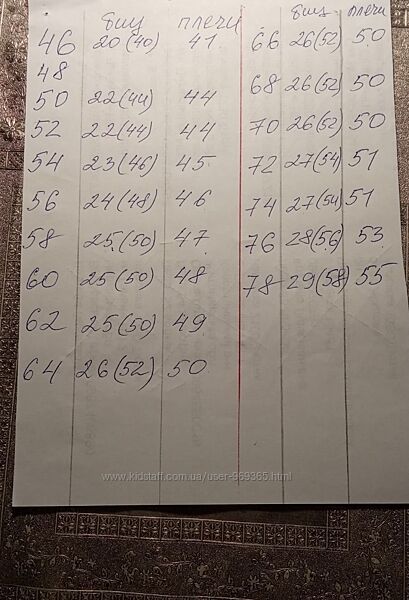 биц плечи
46 20 (40) 41
48
50 22 (44) 44
52 22 (44) 44
54 23 (46) 45
56 24 (48) 46
58 25 (50) 47
60 25 (50) 48
62 25 (50) 49
64 26 (52) 50
биц плечи
66 26 (52) 50
68 26 (52) 50
70 26 (52) 50
72 27 (54) 51
74 27 (54) 51
76 28 (56) 53
78 29 (58) 55
www.kidstaff.com.ua/user-969365.html